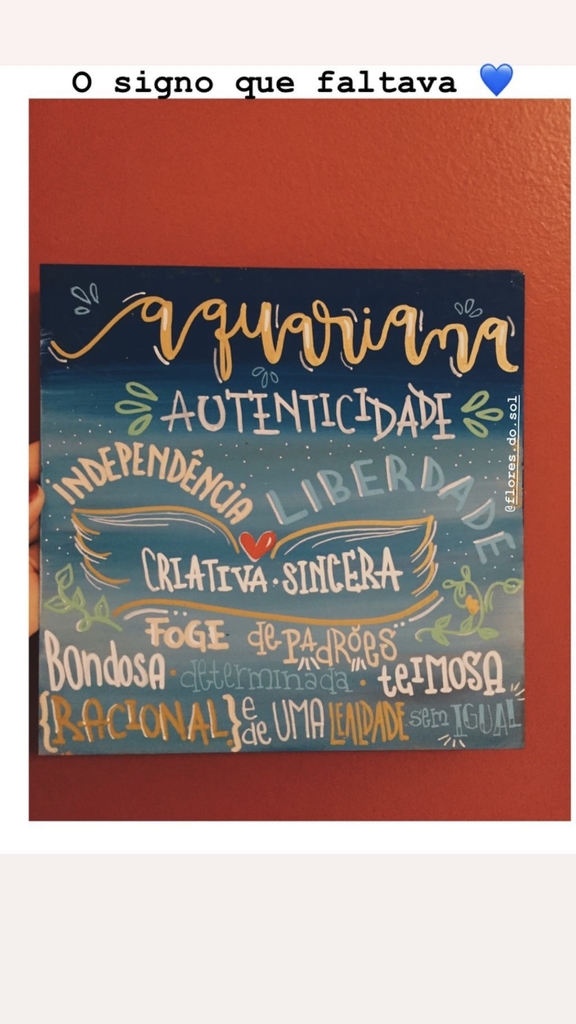 O signo que faltava 💙
aquariana
AUTENTICIDADE
@flores.do.sol
INDEPENDÊNCIA
LIBERDADE
CRIATIVA · SINCERA
FOGE de PADRÕES
BONdOSA · determinada · teIMOSA
{RACIONAL} e de UMA LEALDADE sem IGUAL